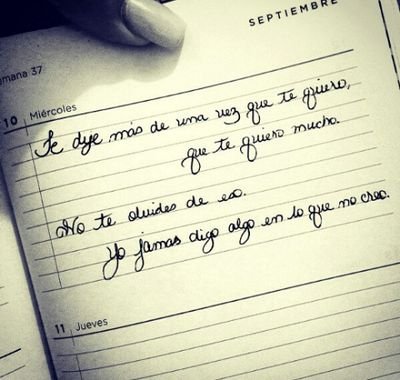 SEPTIEMBRE
mana 37
10 Miércoles
Te dije más de una vez que te quiero,
que te quiero mucho.
No te olvides de eso.
Yo jamas digo algo en lo que no creo.
11 Jueves